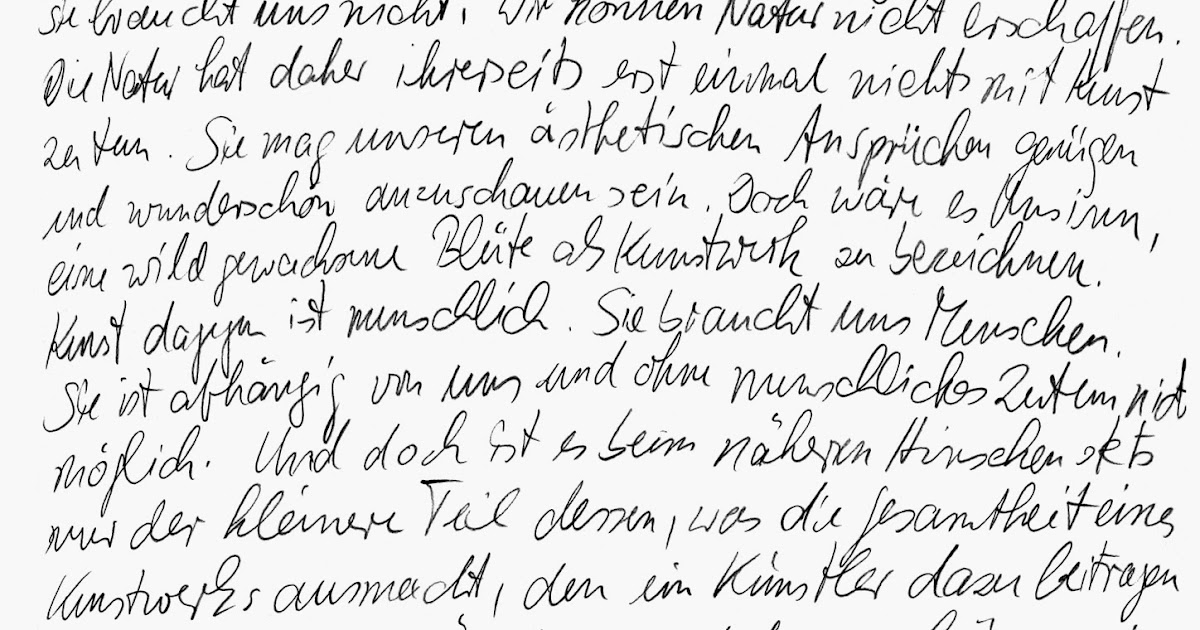 sie braucht uns nicht. Wir können Natur nicht erschaffen.
Die Natur hat daher ihrerseits erst einmal nichts mit Kunst
zu tun. Sie mag unseren ästhetischen Ansprüchen genügen
und wunderschön anzuschauen sein. Doch wäre es Unsinn,
eine wild gewachsene Blüte als Kunstwerk zu bezeichnen.
Kunst dagegen ist menschlich. Sie braucht uns Menschen.
Sie ist abhängig von uns und ohne menschliches Zutun nicht
möglich. Und doch ist es beim näheren Hinsehen stets
nur der kleinere Teil dessen, was die Gesamtheit eines
Kunstwerks ausmacht, den ein Künstler dazu beitragen